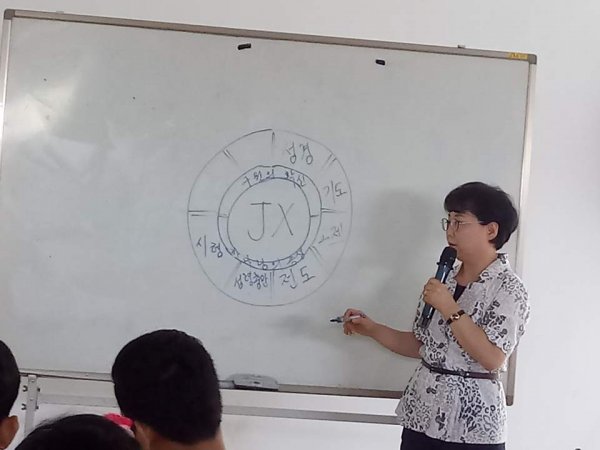 성경
기도
교제
전도
성령충만
시험
구원의 확신
JX